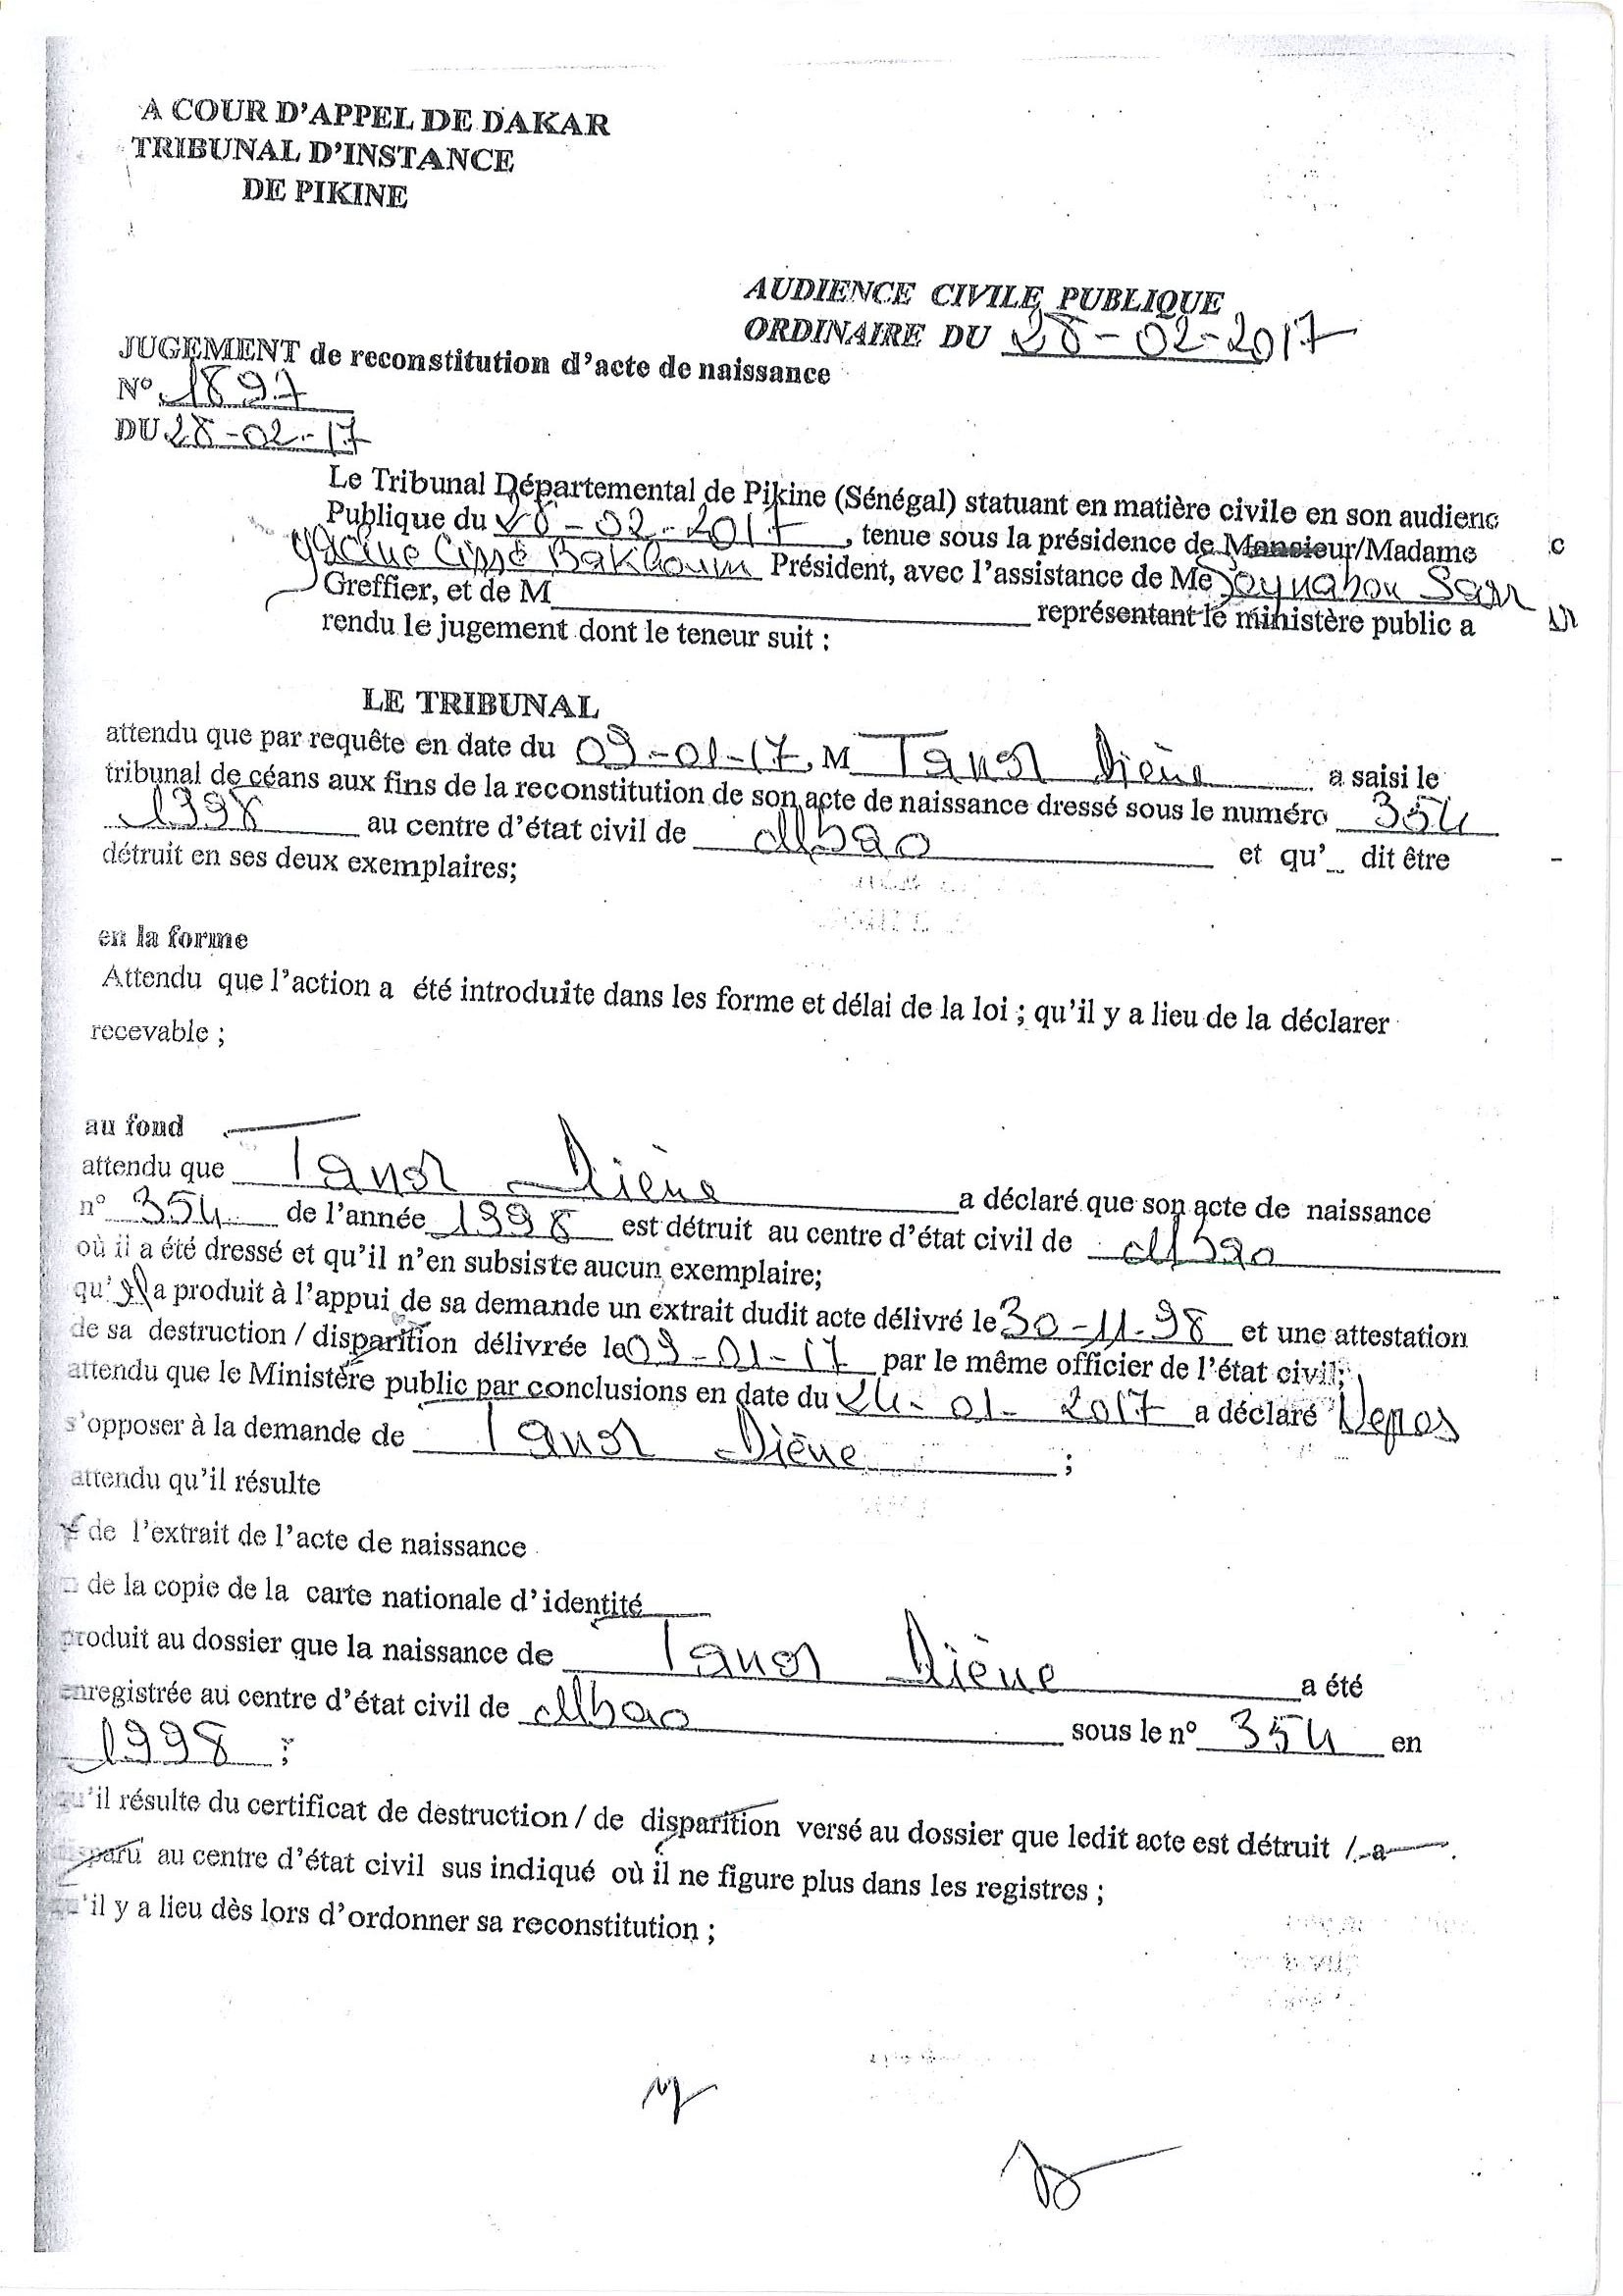 A COUR D'APPEL DE DAKAR
TRIBUNAL D'INSTANCE
DE PIKINE
AUDIENCE CIVILE PUBLIQUE
ORDINAIRE DU 28-02-2017
JUGEMENT de reconstitution d'acte de naissance
N° 1897
DU 28-02-17
Le Tribunal Départemental de Pikine (Sénégal) statuant en matière civile en son audienc
Publique du 28-02-2017, tenue sous la présidence de Monsieur/Madame
Yacine Cissé Bakhoum Président, avec l'assistance de Me Seynabou Sarr
Greffier, et de M représentant le ministère public a
rendu le jugement dont le teneur suit :
LE TRIBUNAL
attendu que par requête en date du 09-01-17, M Tanor Diène a saisi le
tribunal de céans aux fins de la reconstitution de son acte de naissance dressé sous le numéro 354
1998 au centre d'état civil de Mbao et qu' dit être
détruit en ses deux exemplaires;
en la forme
Attendu que l'action a été introduite dans les forme et délai de la loi ; qu'il y a lieu de la déclarer
recevable ;
au fond
attendu que Tanor Diène a déclaré que son acte de naissance
n° 354 de l'année 1998 est détruit au centre d'état civil de Mbao
où il a été dressé et qu'il n'en subsiste aucun exemplaire;
qu'il a produit à l'appui de sa demande un extrait dudit acte délivré le 30-11-98 et une attestation
de sa destruction / disparition délivrée le 09-01-17 par le même officier de l'état civil;
attendu que le Ministère public par conclusions en date du 24-01-2017 a déclaré ne pas
s'opposer à la demande de Tanor Diène ;
attendu qu'il résulte
de l'extrait de l'acte de naissance
de la copie de la carte nationale d'identité
produit au dossier que la naissance de Tanor Diène a été
enregistrée au centre d'état civil de Mbao sous le n° 354 en
1998 ;
qu'il résulte du certificat de destruction / de disparition versé au dossier que ledit acte est détruit / a
disparu au centre d'état civil sus indiqué où il ne figure plus dans les registres ;
qu'il y a lieu dès lors d'ordonner sa reconstitution ;